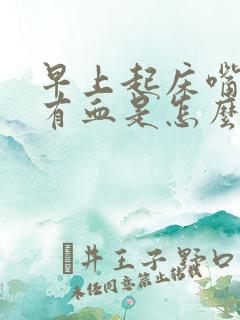 早上起床嘴
有血是怎麽
井王子野口
未任同意禁止转载